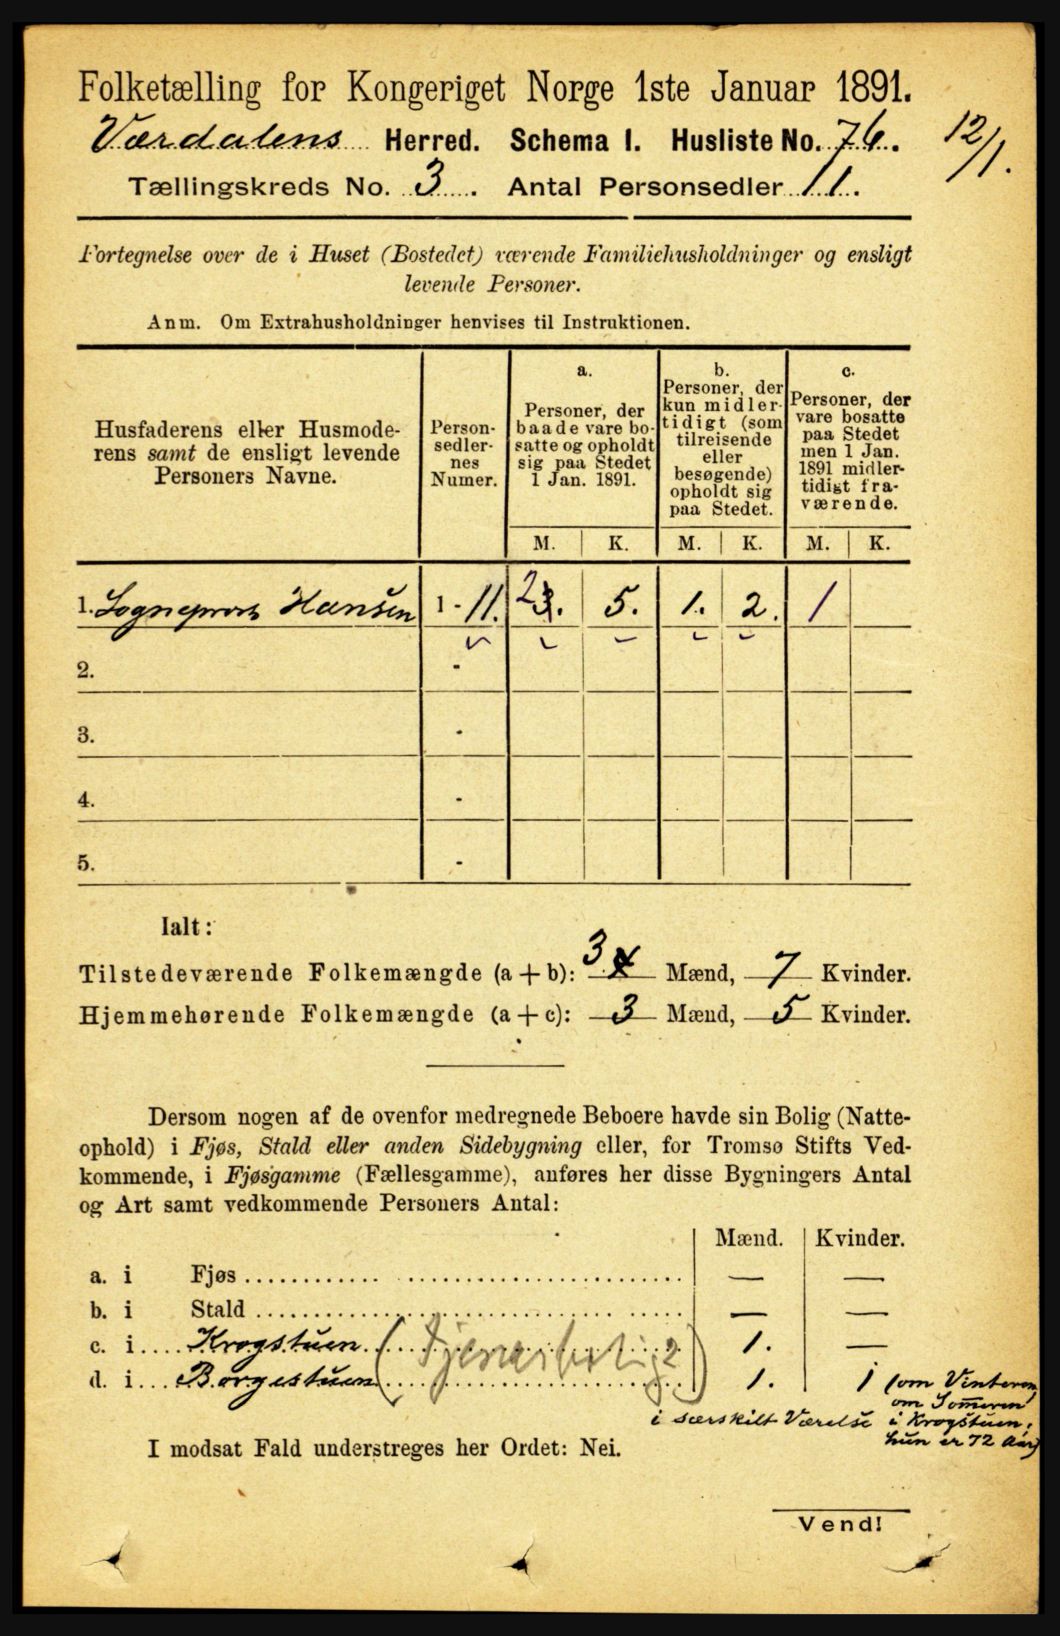 Folketælling for Kongeriget Norge 1ste Januar 1891.
Værdalens Herred. Schema I. Husliste No. 76. 12/1.
Tællingskreds No. 3. Antal Personsedler 11.
Fortegnelse over de i Huset (Bostedet) værende Familiehusholdninger og ensligt
levende Personer.
Anm. Om Extrahusholdninger henvises til Instruktionen.
Husfaderens eller Husmode-
rens samt de ensligt levende
Personers Navne.
Person-
sedler-
nes
Numer.
a.
Personer, der
baade vare bo-
satte og opholdt
sig paa Stedet
1 Jan. 1891.
b.
Personer, der
kun midler-
tidigt (som
tilreisende
eller
besøgende)
opholdt sig
paa Stedet.
c.
Personer, der
vare bosatte
paa Stedet
men 1 Jan.
1891 midler-
tidigt fra-
værende.
M. K. M. K. M. K.
1. Sogneprest Hansen 1 - 11. 2 3. 5. 1. 2. 1
2. -
3. -
4. -
5. -
Ialt:
Tilstedeværende Folkemængde (a + b): 3 4 Mænd, 7 Kvinder.
Hjemmehørende Folkemængde (a + c): 3 Mænd, 5 Kvinder.
Dersom nogen af de ovenfor medregnede Beboere havde sin Bolig (Natte-
ophold) i Fjøs, Stald eller anden Sidebygning eller, for Tromsø Stifts Ved-
kommende, i Fjøsgamme (Fællesgamme), anføres her disse Bygningers Antal
og Art samt vedkommende Personers Antal:
Mænd. Kvinder.
a. i Fjøs — —
b. i Stald — —
c. i Krogstuen 1. —
(Tjenerbolig 2)
d. i Borgestuen 1. 1 (om Vinteren,
om Sommeren
i særskilt Værelse i Krogstuen;
hun er 72 Aar)
I modsat Fald understreges her Ordet: Nei.
Vend!